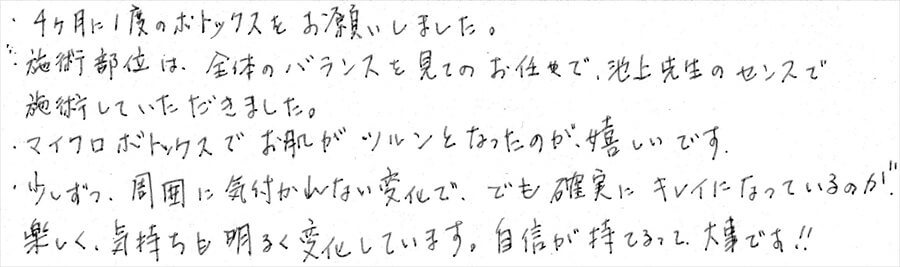 ・4ヶ月に1度のボトックスをお願いしました。
・施術部位は、全体のバランスを見てのお任せで、池上先生のセンスで
施術していただきました。
・マイクロボトックスでお肌がツルンとなったのが、嬉しいです。
・少しずつ、周囲に気付かれない変化で、でも確実にキレイになっているのが、
楽しく、気持ちも明るく変化しています。自信が持てるって、大事です!!